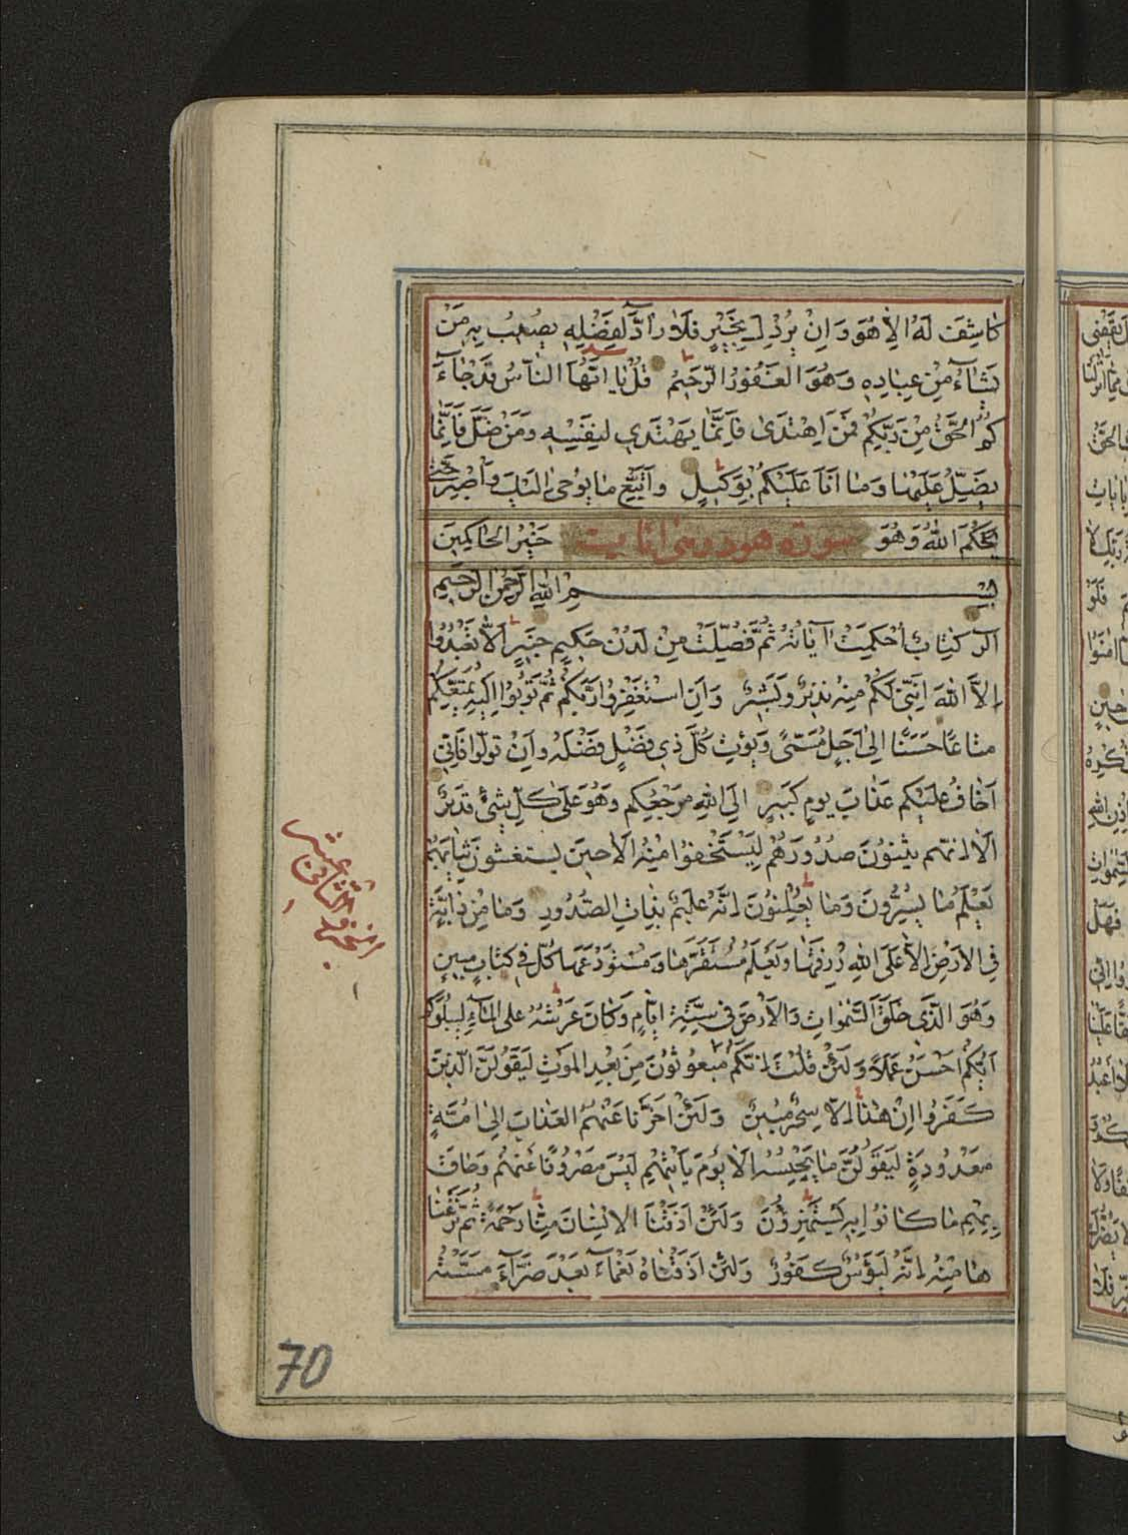 كاشِفَ لَهُ اِلاّ هُوَ وَ اِنْ يُرِدْكَ بِخَيْرٍ فَلا رادَّ لِفَضْلِهِ يُصيبُ بِهِ مَنْ
يَشاءُ مِنْ عِبادِهِ وَ هُوَ الغَفُورُ الرَّحيمُ قُلْ يا اَيُّهَا النّاسُ قَدْ جاءَ
كُمُ الحَقُّ مِنْ رَبِّكُمْ فَمَنِ اهْتَدى فَاِنَّما يَهْتَدي لِنَفْسِهِ وَ مَنْ ضَلَّ فَاِنَّما
يَضِلُّ عَلَيْها وَ ما اَنَا عَلَيْكُمْ بِوَكيلٍ وَ اتَّبِعْ ما يُوحى اِلَيْكَ وَ اصْبِرْ حَتّى
يَحْكُمَ اللهُ وَ هُوَ سورة هود خَيْرُ الحاكِمينَ
بِسْمِ اللهِ الرَّحْمنِ الرَّحيمِ
الر كِتابٌ اُحْكِمَتْ آياتُهُ ثُمَّ فُصِّلَتْ مِنْ لَدُنْ حَكيمٍ خَبيرٍ اَلاّ تَعْبُدُوا
اِلاَّ اللهَ اِنَّني لَكُمْ مِنْهُ نَذيرٌ وَ بَشيرٌ وَ اَنِ اسْتَغْفِرُوا رَبَّكُمْ ثُمَّ تُوبُوا اِلَيْهِ يُمَتِّعْكُمْ
مَتاعًا حَسَنًا اِلى اَجَلٍ مُسَمًّى وَ يُؤْتِ كُلَّ ذي فَضْلٍ فَضْلَهُ وَ اِنْ تَوَلَّوْا فَاِنّي
اَخافُ عَلَيْكُمْ عَذابَ يَوْمٍ كَبيرٍ اِلَى اللهِ مَرْجِعُكُمْ وَ هُوَ عَلى كُلِّ شَيْءٍ قَديرٌ
اَلا اِنَّهُمْ يَثْنُونَ صُدُورَهُمْ لِيَسْتَخْفُوا مِنْهُ اَلا حينَ يَسْتَغْشُونَ ثِيابَهُمْ
يَعْلَمُ ما يُسِرُّونَ وَ ما يُعْلِنُونَ اِنَّهُ عَليمٌ بِذاتِ الصُّدُورِ وَ ما مِنْ دابَّةٍ
فِي الاَرْضِ اِلاّ عَلَى اللهِ رِزْقُها وَ يَعْلَمُ مُسْتَقَرَّها وَ مُسْتَوْدَعَها كُلٌّ في كِتابٍ مُبينٍ
وَ هُوَ الَّذي خَلَقَ السَّمواتِ وَ الاَرْضَ في سِتَّةِ اَيّامٍ وَ كانَ عَرْشُهُ عَلَى الماءِ لِيَبْلُوَكُمْ
اَيُّكُمْ اَحْسَنُ عَمَلاً وَ لَئِنْ قُلْتَ اِنَّكُمْ مَبْعُوثُونَ مِنْ بَعْدِ المَوْتِ لَيَقُولَنَّ الَّذينَ
كَفَرُوا اِنْ هذا اِلاّ سِحْرٌ مُبينٌ وَ لَئِنْ اَخَّرْنا عَنْهُمُ العَذابَ اِلى اُمَّةٍ
مَعْدُودَةٍ لَيَقُولُنَّ ما يَحْبِسُهُ اَلا يَوْمَ يَأْتيهِمْ لَيْسَ مَصْرُوفًا عَنْهُمْ وَ حاقَ
بِهِمْ ما كانُوا بِهِ يَسْتَهْزِؤُنَ وَ لَئِنْ اَذَقْنَا الاِنْسانَ مِنّا رَحْمَةً ثُمَّ نَزَعْنا
ها مِنْهُ اِنَّهُ لَيَؤُسٌ كَفُورٌ وَ لَئِنْ اَذَقْناهُ نَعْماءَ بَعْدَ ضَرّاءَ مَسَّتْهُ
70